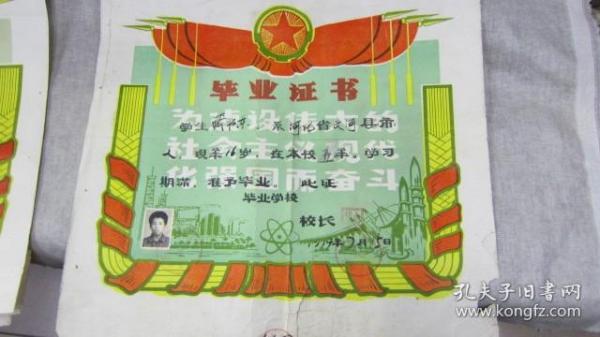 毕业证书
为建设伟大的
社会主义现代
化强国而奋斗
学生 系河北省交河县
人，现年16岁，在本校 学习
期满，准予毕业。此证
毕业学校
校长
年7月15日
孔夫子旧书网
www.kongfz.com